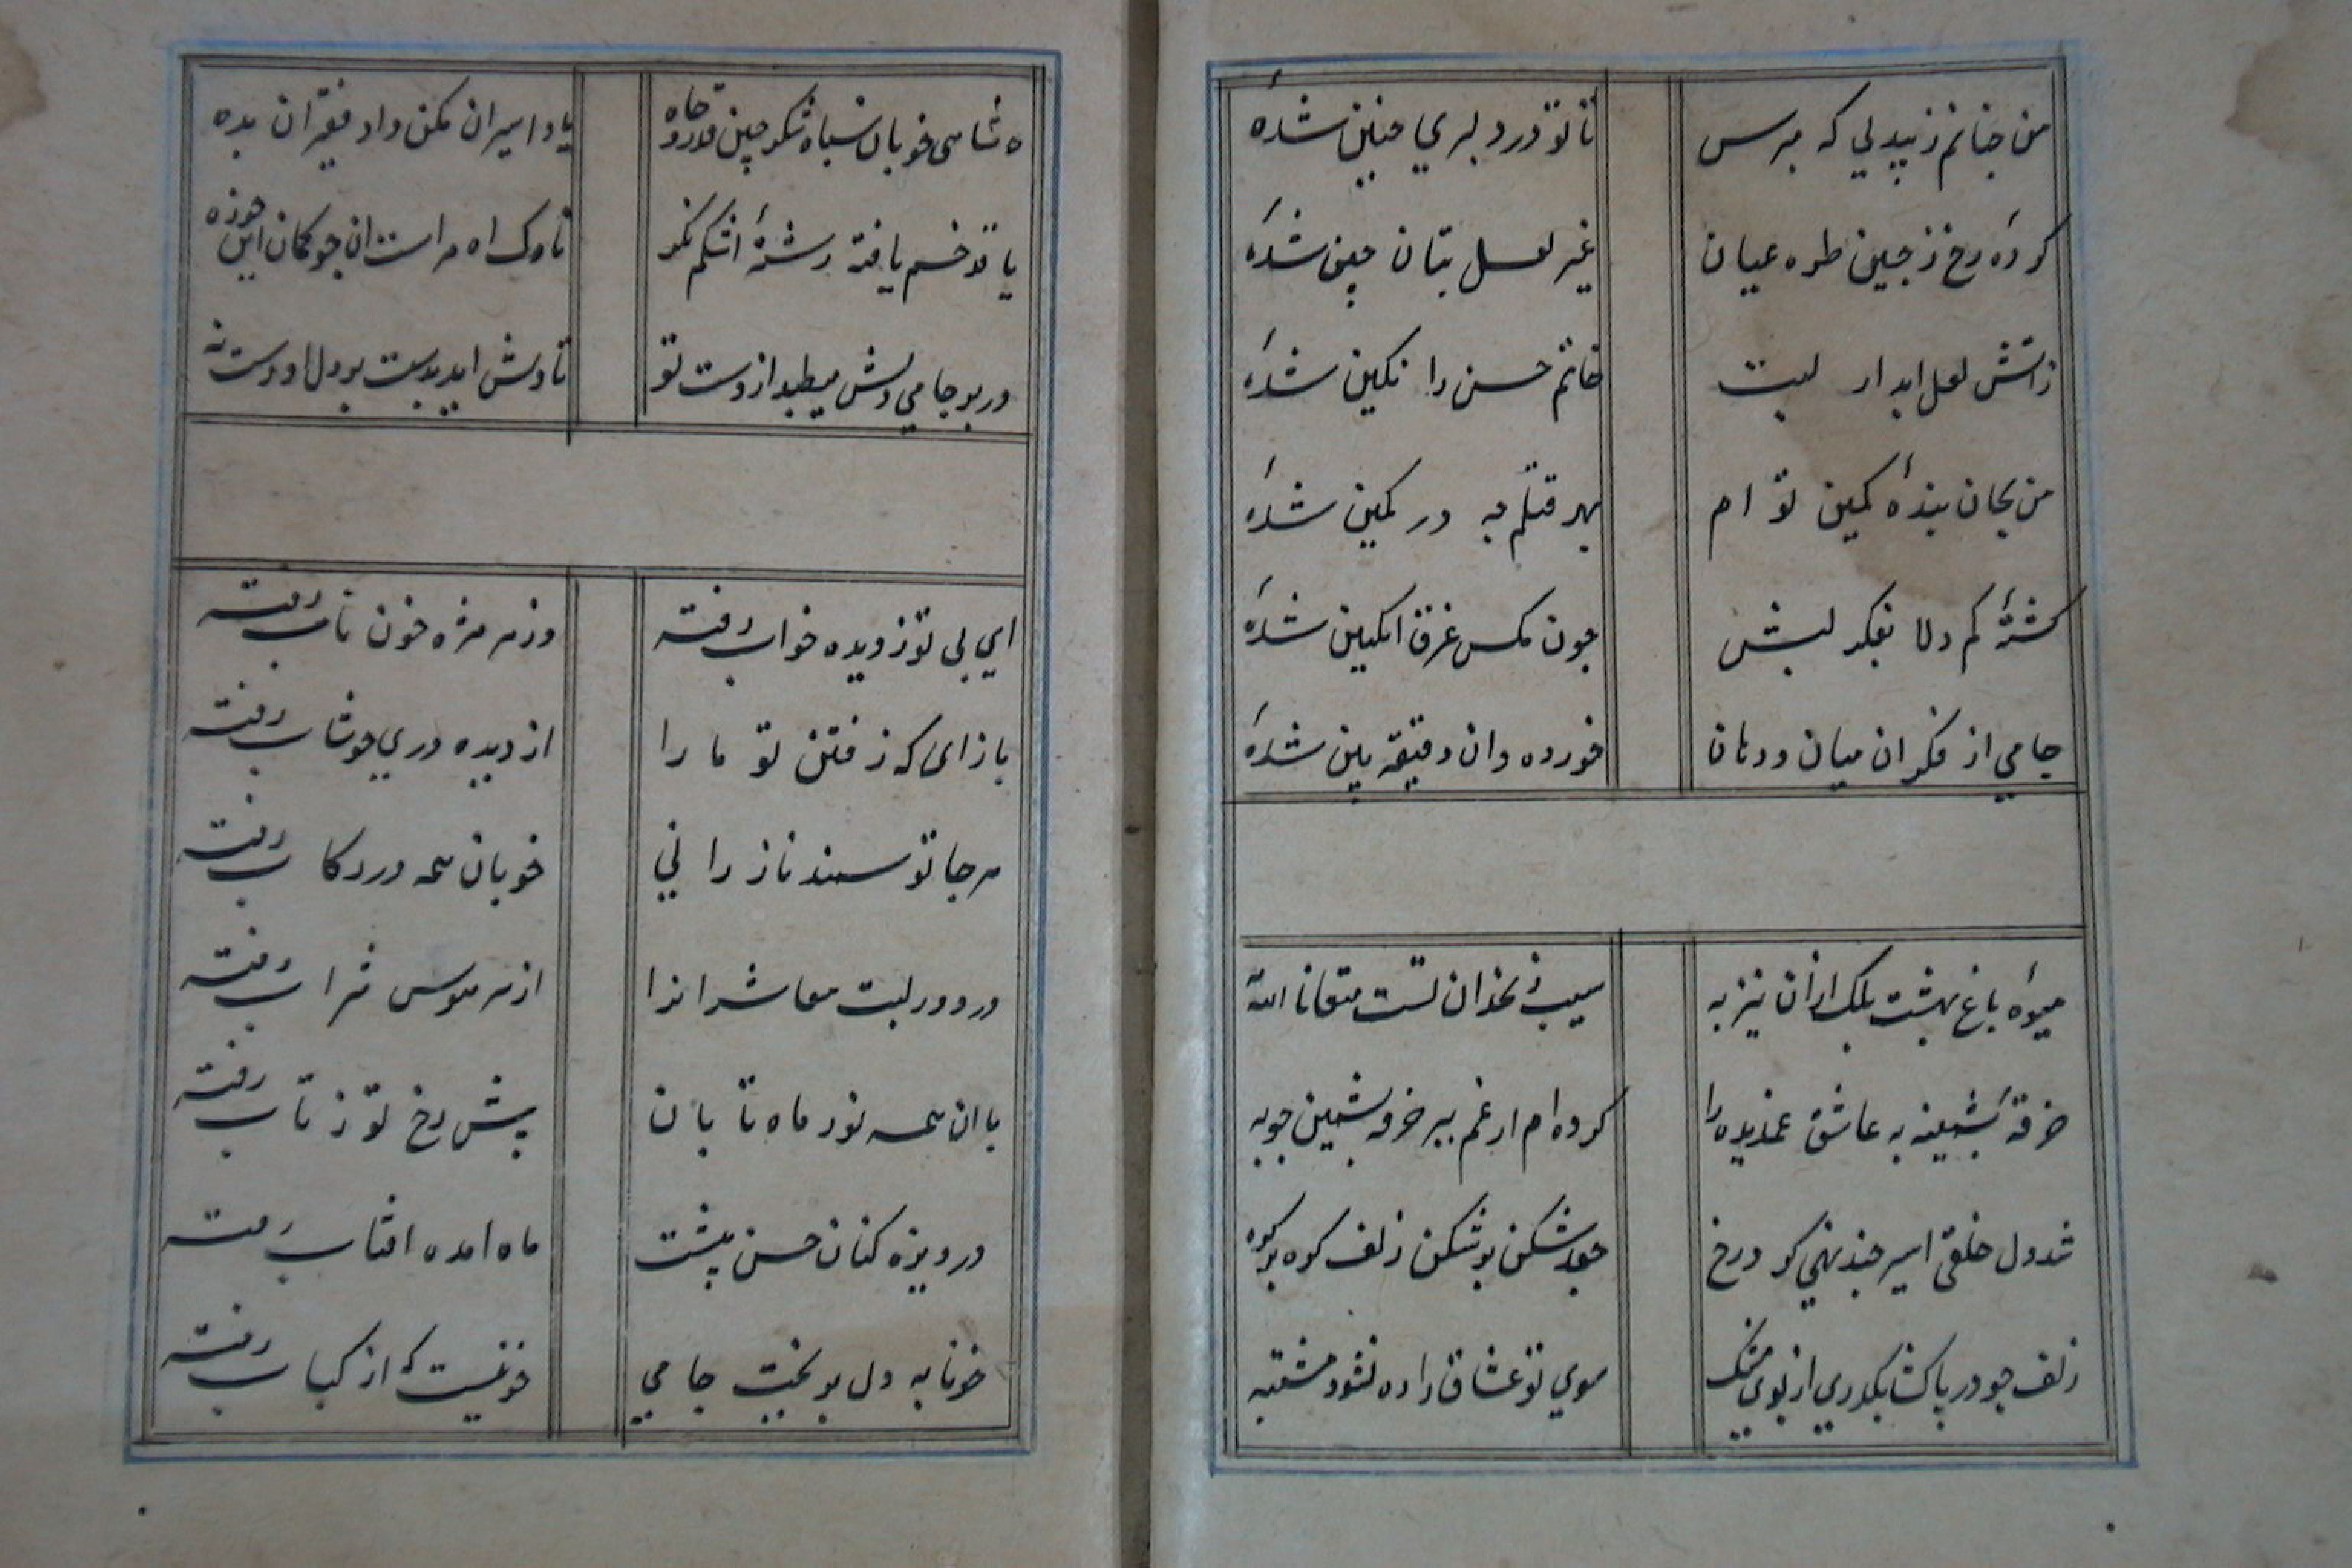 من جنانم ز بیدلی که مپرس
تا تو در دلبری جنین شدهٔ
کردهٔ رخ ز جین طره عیان
غیر لعل بتان جین شدهٔ
ز اتش لعل ابدار لبت
خاتم حسن را نکین شدهٔ
من بجان بندهٔ کمین تو ام
بهر قتلم جه در کمین شدهٔ
کشتهٔ کم دلا بفکر لبش
جون مکس غرق انکبین شدهٔ
جامی از فکر ان میان و دهان
خورده دان دقیقه بین شدهٔ
میوهٔ باغ بهشت بلک ازان نیز به
سیب زنخدان تست متعنا الله
خرقهٔ پشمینه به عاشق غمدیده را
کرده ام از غم ببر خرقه پشمین جو به
شد دل خلقی اسیر جند نهی کرد رخ
جعد شکن بر شکن زلف کره بر کره
زلف جو در پا کشا بکذری از بوی مشک
سوی تو عشاق را ره نشود مشتبه
شاهی خوبان سپاه شکر جین قدر و جاه
یاد اسیران مکن داد فقیران بده
با قد خم یافته رشتهٔ اشکم نکر
ناوک اه مراست ان جو کمان این جو زه
در بر جامی دلش میطبد از دست تو
تا دلش اید بدست بر دل او دست نه
ای بی تو ز دیده خواب رفته
وز هر مژه خون ناب رفته
باز ای که ز فتن تو ما را
از دیده در خوشاب رفته
هر جا تو سمند ناز رانی
خوبان همه در رکاب رفته
در دور لبت معاشرانرا
از سر هوس شراب رفته
با ان همه نور ماه تابان
پیش رخ تو ز تاب رفته
دریوزه کنان حسن پیشت
ماه امده افتاب رفته
خونابه دل بریخت جامی
خونیست که از کباب رفته